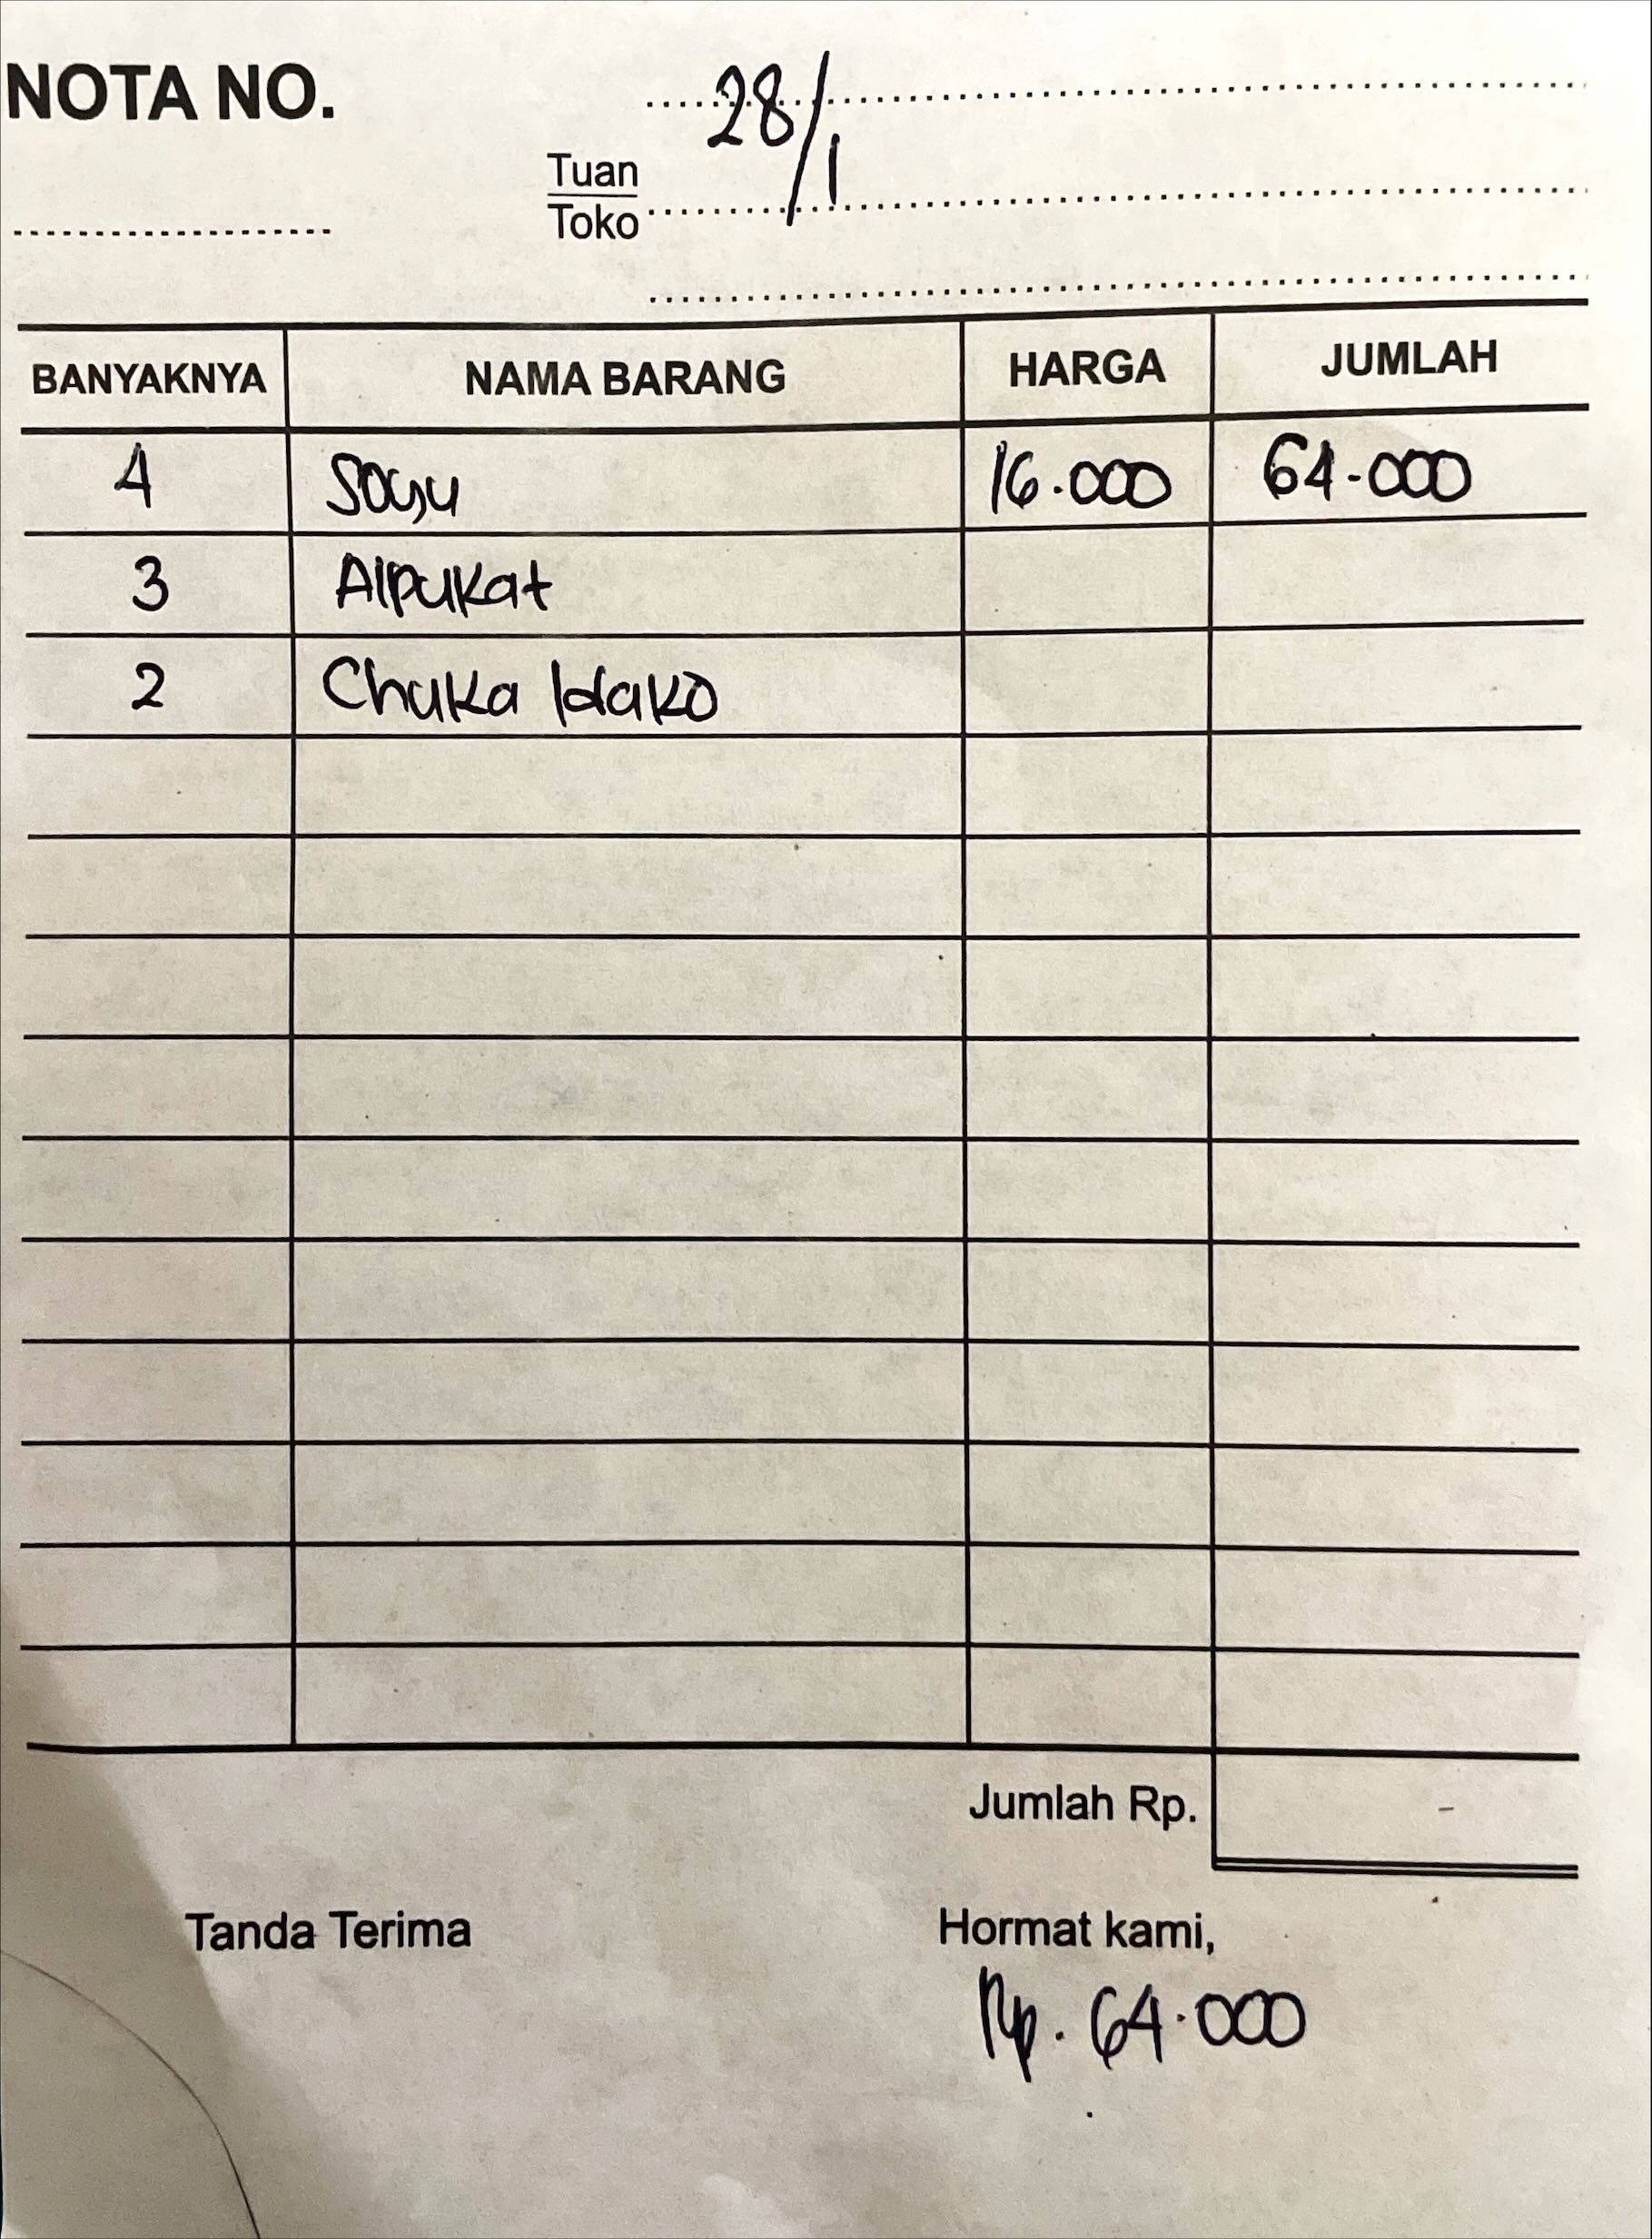 NOTA NO.
28/1
Tuan
Toko
BANYAKNYA NAMA BARANG HARGA JUMLAH
4 Sogu 16.000 64.000
3 Alpukat
2 Chuka Idako
Jumlah Rp. -
Tanda Terima Hormat kami,
Rp. 64.000